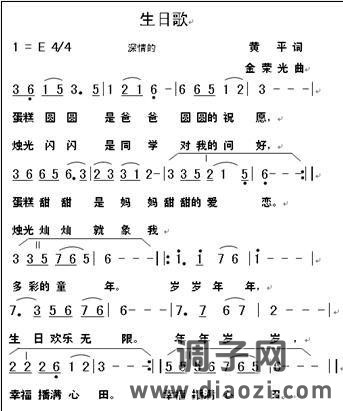 生日歌
1 = E 4/4 深情的 黄 平 词
金 荣 光 曲
3 6 1 5 3. 5 | 1 2 1 6 - | 6 6 5 1 2 | 3 - - - |
蛋糕 圆 圆 是 爸 爸 圆 圆的 祝 愿,
烛光 闪 闪 是 同 学 对 我的 问 好,
3 6 3 6 5 6. 3 | 2 3 3 2 1 - | 3 3 5 2 1 5 | 6 - - - :||
蛋糕 甜 甜 是 妈 妈 甜甜 的 爱 恋。
烛光 灿 灿 就 象 我
3 3 5 7 6 5 | 6 - - - :|| i. i 7 6 | i. i 7 - |
多 彩 的 童 年。 岁 岁 年 年,
7. 3 6 7 5 3 | 6 - - - | 7. 7 6 7 | 2 - - - |
生 日 欢乐 无 限。 年 年 岁 岁,
2 2 2 6 1 2 | 3 - - -
幸福 播满 心 田。 幸福 播满 心 田。
调子网
www.diaozi.com